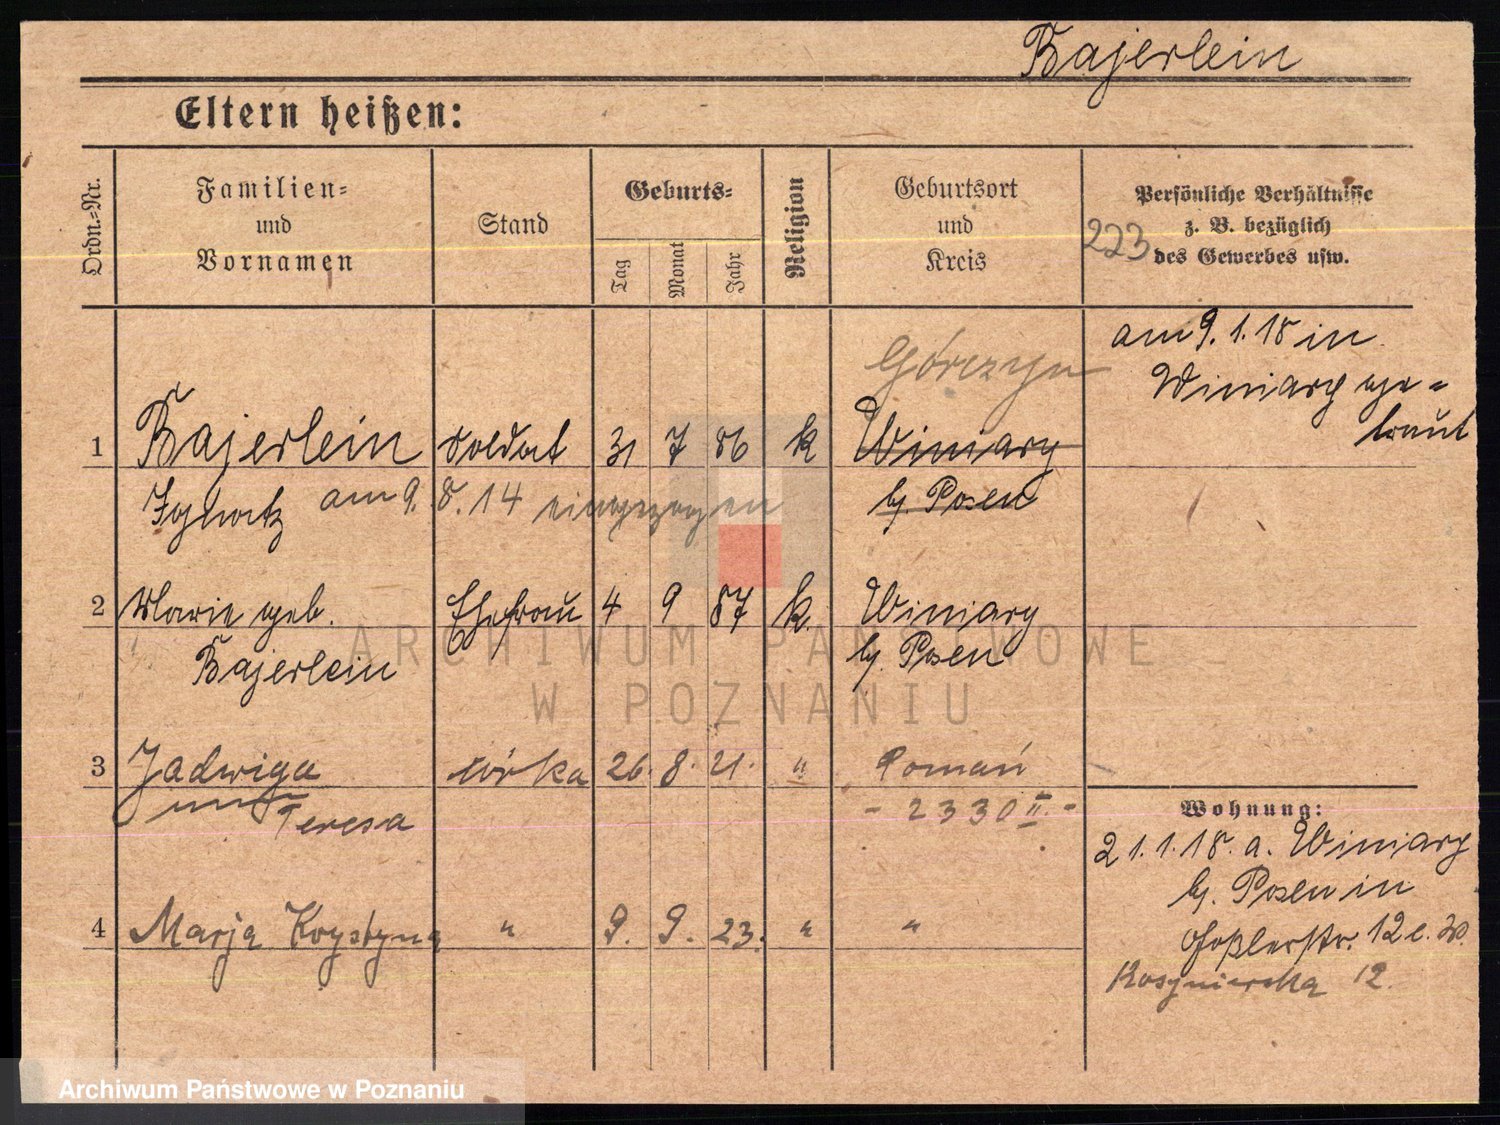 Bajerlein
Eltern heißen:
Ordn.-Nr.
Familien-
und
Vornamen
Stand
Geburts-
Tag
Monat
Jahr
Religion
Geburtsort
und
Kreis
Persönliche Verhältnisse
z. B. bezüglich
des Gewerbes usw.
223
am 9. 1. 18 in
Winiary ge-
traut
Górczyn
1 Bajerlein Soldat 31 7 86 k Winiary
Ignatz am 9. 8. 14 eingezogen b. Posen
2 Marie geb. Ehefrau 4 9 87 k. Winiary
Bajerlein b. Posen
3 Jadwiga córka 26. 8. 21. " Poznań
Teresa - 2330 II. -
4 Marja Krystyna " 9. 9. 23. " "
Wohnung:
21. 1. 18. a. Winiary
b. Posen in
Goßlerstr. 12
12.
ARCHIWUM PAŃSTWOWE
W POZNANIU
Archiwum Państwowe w Poznaniu